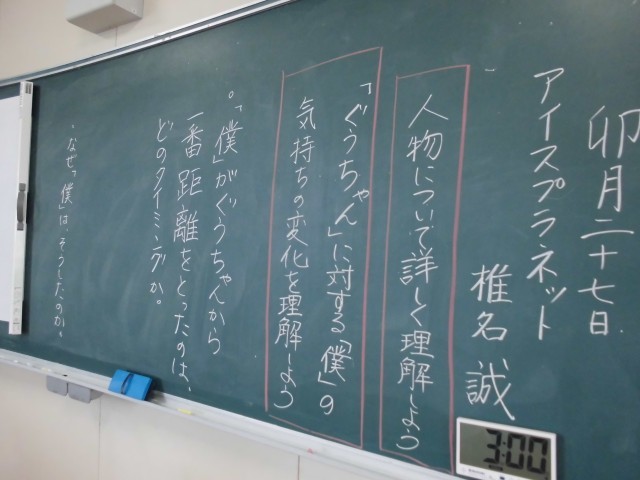 卯月二十七日
アイスプラネット
椎名誠
人物について詳しく理解しよう
「ぐうちゃん」に対する「僕」の
気持ちの変化を理解しよう
。「僕」がぐうちゃんから
一番距離をとったのは、
どのタイミングか。
・なぜ「僕」は、そうしたのか。
3:00